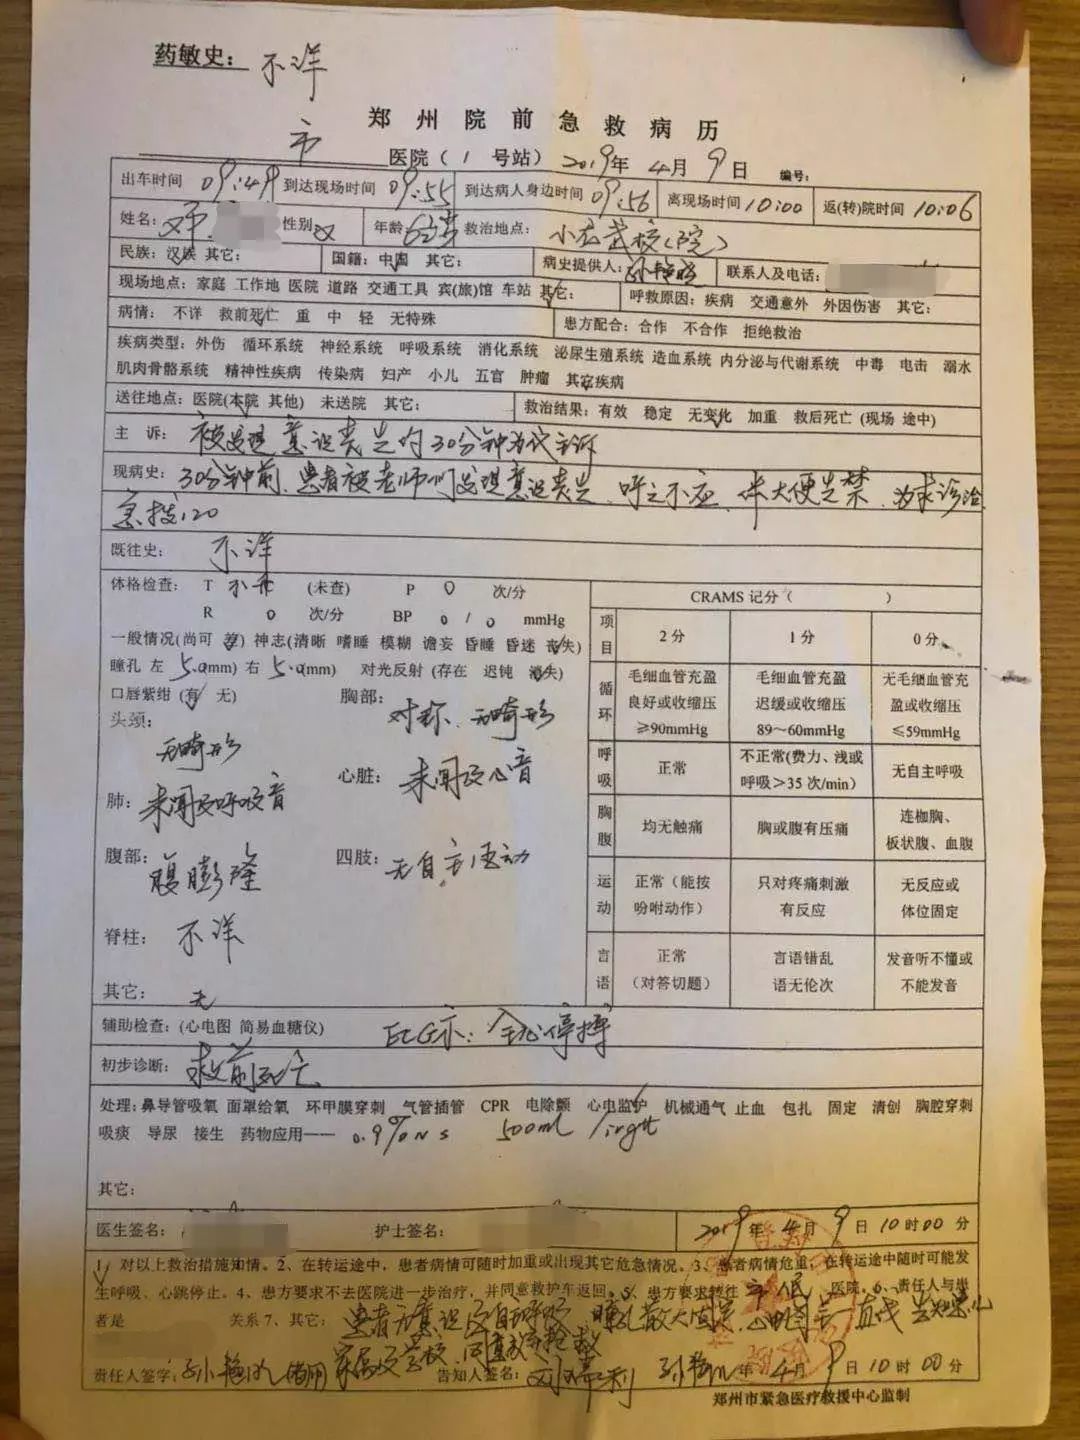 药敏史： 不详
郑州院前急救病历
市 医院（1 号站） 2019年 4月 9日 编号：
出车时间 09:49 到达现场时间 09:55 到达病人身边时间 09:56 离现场时间 10:00 返(转)院时间 10:06
姓名： 性别 女 年龄 救治地点： 小龙武校(院)
民族：汉族 其它： 国籍：中国 其它： 病史提供人： 联系人及电话：
现场地点：家庭 工作地 医院 道路 交通工具 宾(旅)馆 车站 其它： 呼救原因：疾病 交通意外 外因伤害 其它：
病情：不详 救前死亡 重 中 轻 无特殊 患方配合：合作 不合作 拒绝救治
疾病类型：外伤 循环系统 神经系统 呼吸系统 消化系统 泌尿生殖系统 造血系统 内分泌与代谢系统 中毒 电击 溺水
肌肉骨骼系统 精神性疾病 传染病 妇产 小儿 五官 肿瘤 其它疾病
送往地点：医院(本院 其他) 未送院 其它： 救治结果：有效 稳定 无变化 加重 救后死亡 (现场 途中)
主 诉： 被发现意识丧失约30分钟为代主诉
现病史：30分钟前、患者被老师们发现意识丧失、呼之不应、伴大便失禁、为求诊治
急拨120
既往史： 不详
体格检查： T 不升 (未查) P 0 次/分
R 0 次/分 BP 0 / 0 mmHg
一般情况(尚可 差) 神志(清晰 嗜睡 模糊 谵妄 昏睡 昏迷 丧失)
瞳孔 左 5.0(mm) 右 5.0(mm) 对光反射 (存在 迟钝 消失)
口唇紫绀 (有 无) 胸部： 对称、无畸形
头颈： 无畸形
心脏： 未闻及心音
肺： 未闻及呼吸音
腹部： 腹膨隆 四肢： 无自主活动
脊柱： 不详
其它： 无
CRAMS 记分（ ）
项目 2分 1分 0分
循环 毛细血管充盈良好或收缩压≥90mmHg 毛细血管充盈迟缓或收缩压89～60mmHg 无毛细血管充盈或收缩压≤59mmHg
呼吸 正常 不正常(费力、浅或呼吸＞35 次/min) 无自主呼吸
胸腹 均无触痛 胸或腹有压痛 连枷胸、板状腹、血腹
运动 正常（能按吩咐动作） 只对疼痛刺激有反应 无反应或体位固定
言语 正常（对答切题） 言语错乱语无伦次 发音听不懂或不能发音
辅助检查：(心电图 简易血糖仪) ECG示：全心停搏
初步诊断： 救前死亡
处理：鼻导管吸氧 面罩给氧 环甲膜穿刺 气管插管 CPR 电除颤 心电监护 机械通气 止血 包扎 固定 清创 胸腔穿刺
吸痰 导尿 接生 药物应用—— 0.9% NS 500ml
其它：
医生签名： 护士签名： 2019年 4月 9日 10时00分
1、对以上救治措施知情。2、在转运途中，患者病情可随时加重或出现其它危急情况。3、患者病情危重，在转运途中随时可能发
生呼吸、心跳停止。4、患方要求不去医院进一步治疗，并同意救护车返回。5、患方要求转往 市人民 医院。6、责任人与患
者是 关系 7、其它： 患者无意识及自主呼吸、瞳孔散大固定、心电图呈一直线、告知患儿
家属及学校、同意放弃抢救
责任人签字： 告知人签名： 年 4月 9日 10时 00分
郑州市紧急医疗救援中心监制